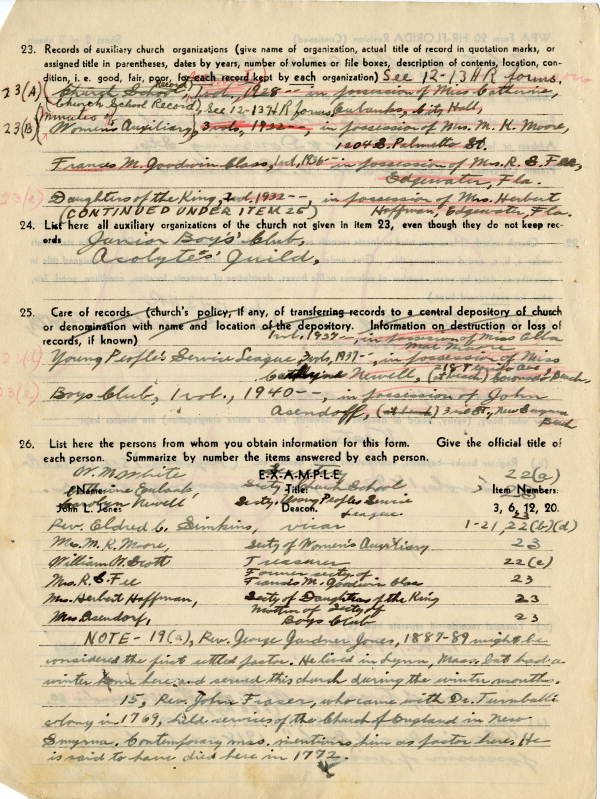 23. Records of auxiliary church organizations (give name of organization, actual title of record in quotation marks, or
assigned title in parentheses, dates by years, number of volumes or file boxes, description of contents, location, con-
dition, i. e. good, fair, poor, for each record kept by each organization) See 12-13 HR forms.
23(A) Church School Record, 1 vol., 1928 -- in possession of Miss Catherine,
Church School Record, See 12-13 HR forms Eubanks, City Hall,
Minutes of
23(B) Women's Auxiliary, 3 vols, 1932 --, in possession of Mrs. M. K. Moore,
1204 S. Palmetto St.
Frances M. Goodwin Class, 1 vol., 1936 -- in possession of Mrs. R. S. Fee,
Edgewater, Fla.
Daughters of the King, 2 vol, 1932 --, in possession of Mrs. Herbert
(CONTINUED UNDER ITEM 25) Hoffman, Edgewater, Fla.
24. List here all auxiliary organizations of the church not given in item 23, even though they do not keep rec-
ords Junior Boys' Club,
Acolytes' Guild,
25. Care of records. (church's policy, if any, of transferring records to a central depository of church
or denomination with name and location of the depository. Information on destruction or loss of
records, if known) 1 vol. 1937 --, in possession of Miss Ella
Mae
Young People's Service League, 2 vols, 1937 --, in possession of Miss
Newell, Coronado Beach,
Boys Club, 1 vol., 1940 --, in possession of John
Asendorf, 3rd St., New Smyrna
Bch
26. List here the persons from whom you obtain information for this form. Give the official title of
each person. Summarize by number the items answered by each person.
W. M. White E-X-A-M-P-L-E 22(a)
Catherine Eubanks Secty Church School
Name: Title: Item Numbers:
Newell, Secty. Young Peoples Service
League 23
John L. Jones Deacon. 3, 6, 12, 20.
Rev. Eldred C. Simkins, vicar 1-21, 22(b)(d)
Mrs. M. K. Moore, Secty of Women's Auxiliary 23
William W. Scott Treasurer 22(c)
Former secty of
Mrs. R. S. Fee Frances M. Goodwin Class 23
Mrs. Herbert Hoffman, Secty of Daughters of the King 23
Mother of Secty of
Mrs. Asendorf, Boys Club 23
NOTE - 19(a), Rev. George Gardner Jones, 1887-89 might be
considered the first settled pastor. He lived in Lynn, Mass. but had a
winter home here and served this church during the winter months.
15, Rev. John Fraser, who came with Dr. Turnbull's
colony in 1769, held services of the Church of England in New
Smyrna. Contemporary mss. mentions him as pastor here. He
is said to have died here in 1772.